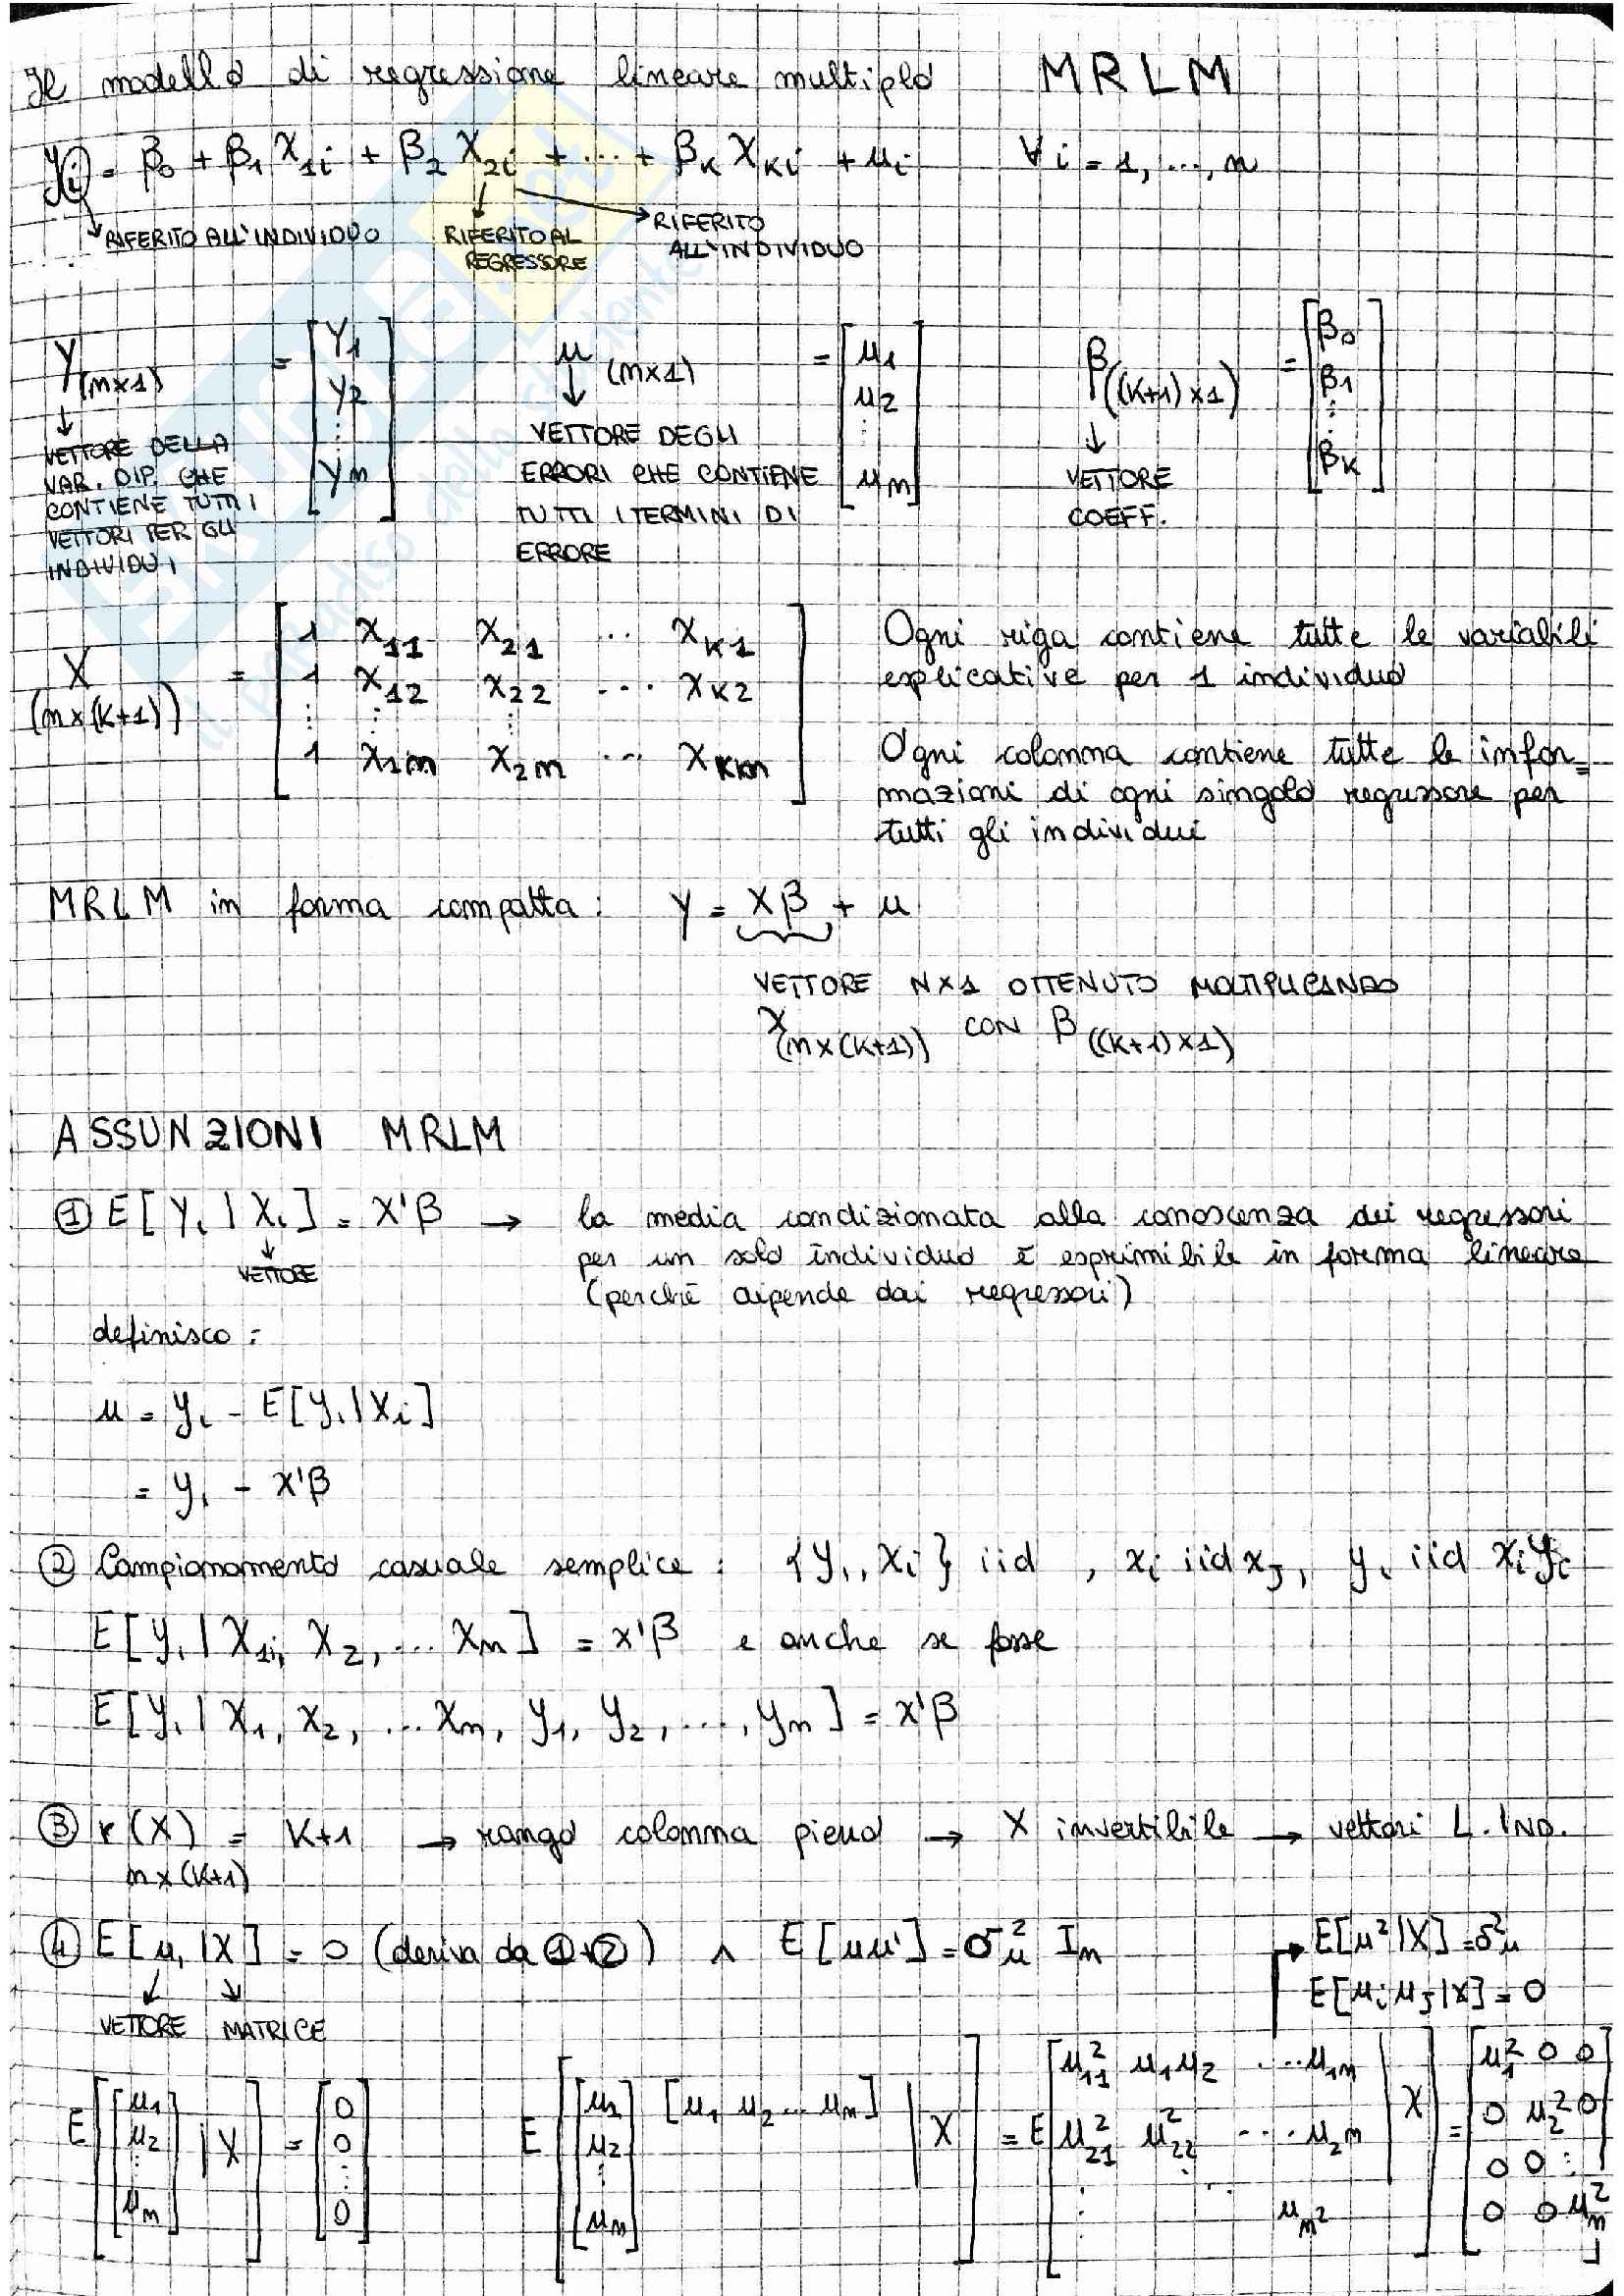 Il modello di regressione lineare multiplo MRLM
yi = β0 + β1 X1i + β2 X2i + ... + βK XKi + ui ∀ i = 1, ..., n
RIFERITO ALL'INDIVIDUO RIFERITO AL REGRESSORE RIFERITO ALL'INDIVIDUO
Y(nx1) = [Y1 Y2 ⋮ Yn] u(nx1) = [u1 u2 ⋮ un] β((K+1)x1) = [β0 β1 ⋮ βK]
VETTORE DELLA
VAR. DIP. CHE
CONTIENE TUTTI I
VETTORI PER GLI
INDIVIDUI
VETTORE DEGLI
ERRORI CHE CONTIENE
TUTTI I TERMINI DI
ERRORE
VETTORE
COEFF.
X (nx(K+1)) =
1 X11 X21 ... XK1
1 X12 X22 ... XK2
⋮ ⋮ ⋮
1 X1n X2n ... XKn
Ogni riga contiene tutte le variabili
esplicative per 1 individuo
Ogni colonna contiene tutte le infor=
mazioni di ogni singolo regressore per
tutti gli individui
MRLM in forma compatta: Y = Xβ + u
VETTORE NX1 OTTENUTO MOLTIPLICANDO
X(nx(K+1)) CON β((K+1)x1)
ASSUNZIONI MRLM
① E[Yi | Xi] = X'β → la media condizionata alla conoscenza dei regressori
VETTORE
per un solo individuo è esprimibile in forma lineare
(perchè dipende dai regressori)
definisco:
u = yi - E[yi | Xi]
= yi - X'β
② Campionamento casuale semplice: {yi, Xi} iid, xi iid xj, yi iid xi yi
E[yi | X1i, X2, ... Xn] = x'β e anche se fosse
E[yi | X1, X2, ... Xn, y1, y2, ..., yn] = x'β
③ r(X) = K+1 → rango colonna pieno → X invertibile → vettori L. IND.
nx(K+1)
④ E[ui | X] = 0 (deriva da ① + ②) ∧ E[uu'] = σ²u In
E[u²|X] = σ²u
E[ui uj |X] = 0
VETTORE MATRICE
E[[u1 u2 ⋮ un] | X] = [0 0 ⋮ 0]
E[[u1 u2 ⋮ un] [u1 u2 ... un] | X] = E[u²11 u1u2 ... u1n u²21 u²22 ... u2n ⋮ un² | X] = [u1² 0 0 0 u2² 0 0 0 ⋮ 0 0 un²]